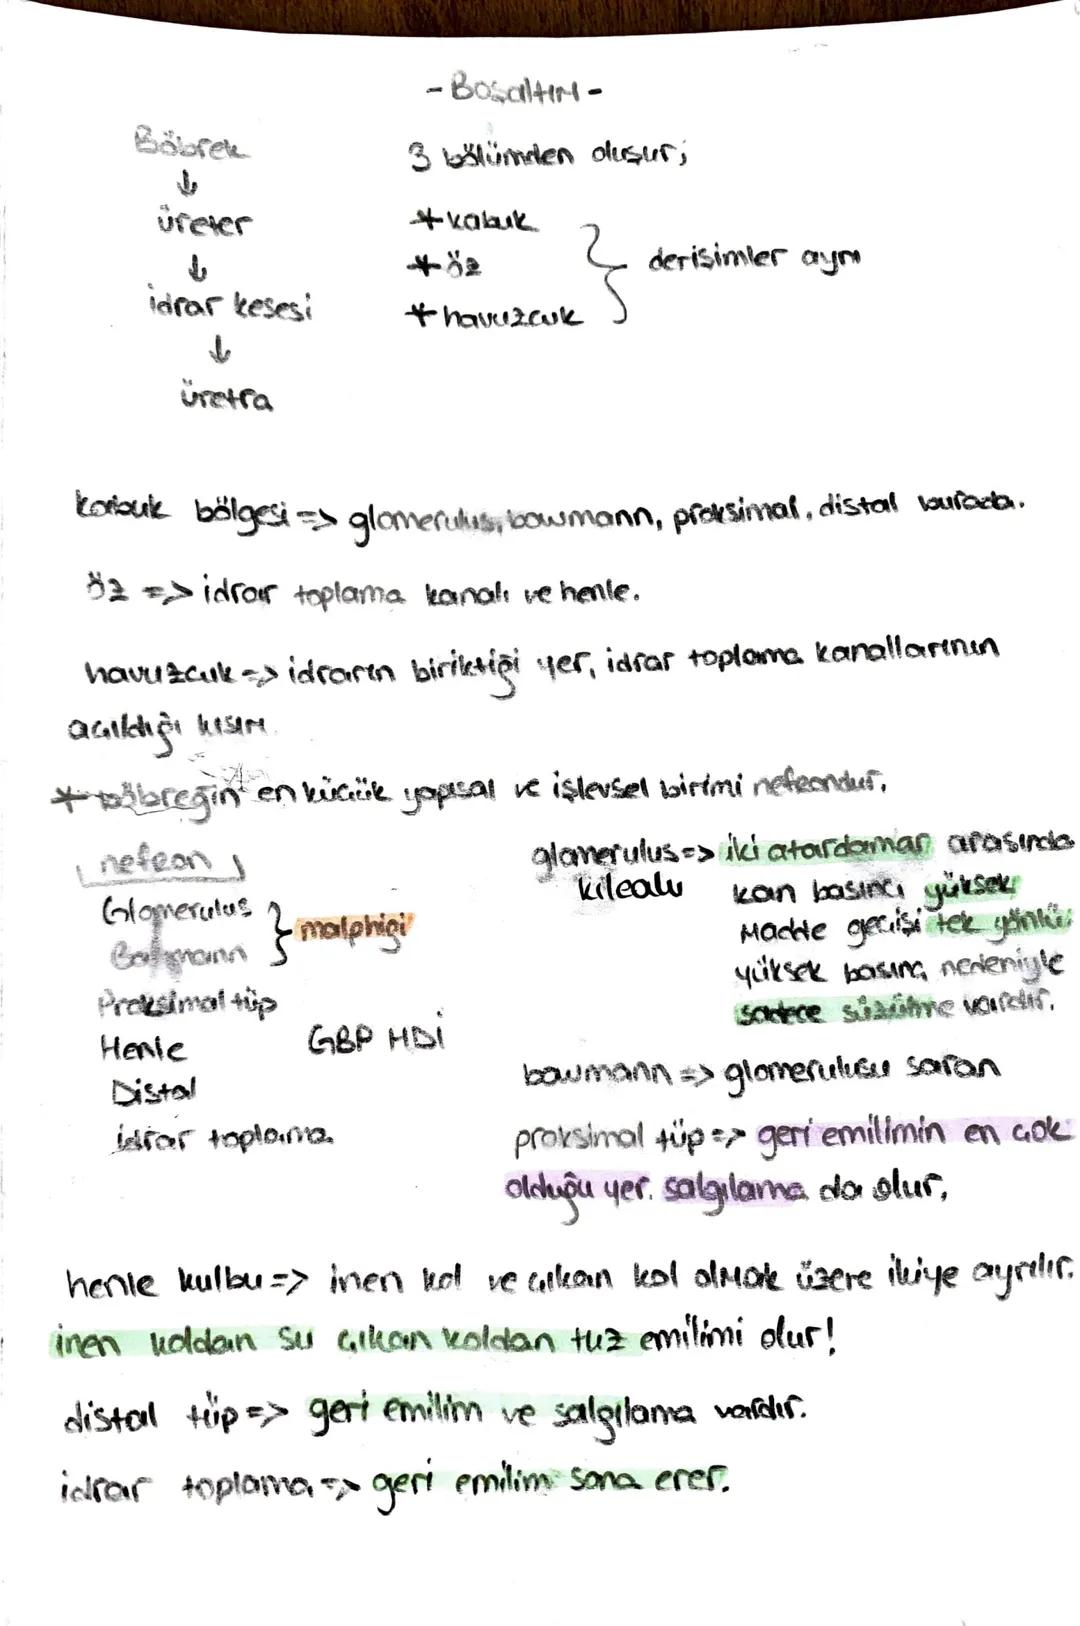 - Boşaltım -
Böbrek
↓
üreter
↓
idrar kesesi
↓
üretra
3 bölümden oluşur;
* kabuk
* öz
* havuzcuk
derişimler aynı
kabuk bölgesi => glomerulus, bowmann, proksimal, distal burada.
öz => idrar toplama kanalı ve henle.
havuzcuk => idrarın biriktiği yer, idrar toplama kanallarının
açıldığı kısım.
* böbreğin en küçük yapısal ve işlevsel birimi nefrondur.
nefron
Glomerulus
Bowmann
malphigi
Proksimal tüp
Henle
Distal
idrar toplama
GBP HDİ
glomerulus => iki atardamar arasında
kılcalı kan basıncı yüksek
Madde geçişi tek yönlü
yüksek basınç nedeniyle
sadece süzülme vardır.
bowmann => glomerulusu saran
proksimal tüp => geri emilimin en çok
olduğu yer. salgılama da olur.
henle kulbu => inen kol ve çıkan kol olmak üzere ikiye ayrılır.
inen koldan su çıkan koldan tuz emilimi olur!
distal tüp => geri emilim ve salgılama vardır.
idrar toplama => geri emilim sona erer.